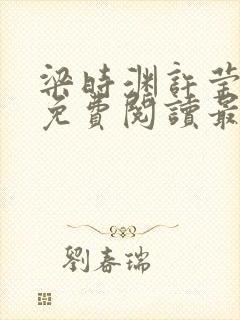 梁時渊許莹
免費閱讀最
劉春瑞